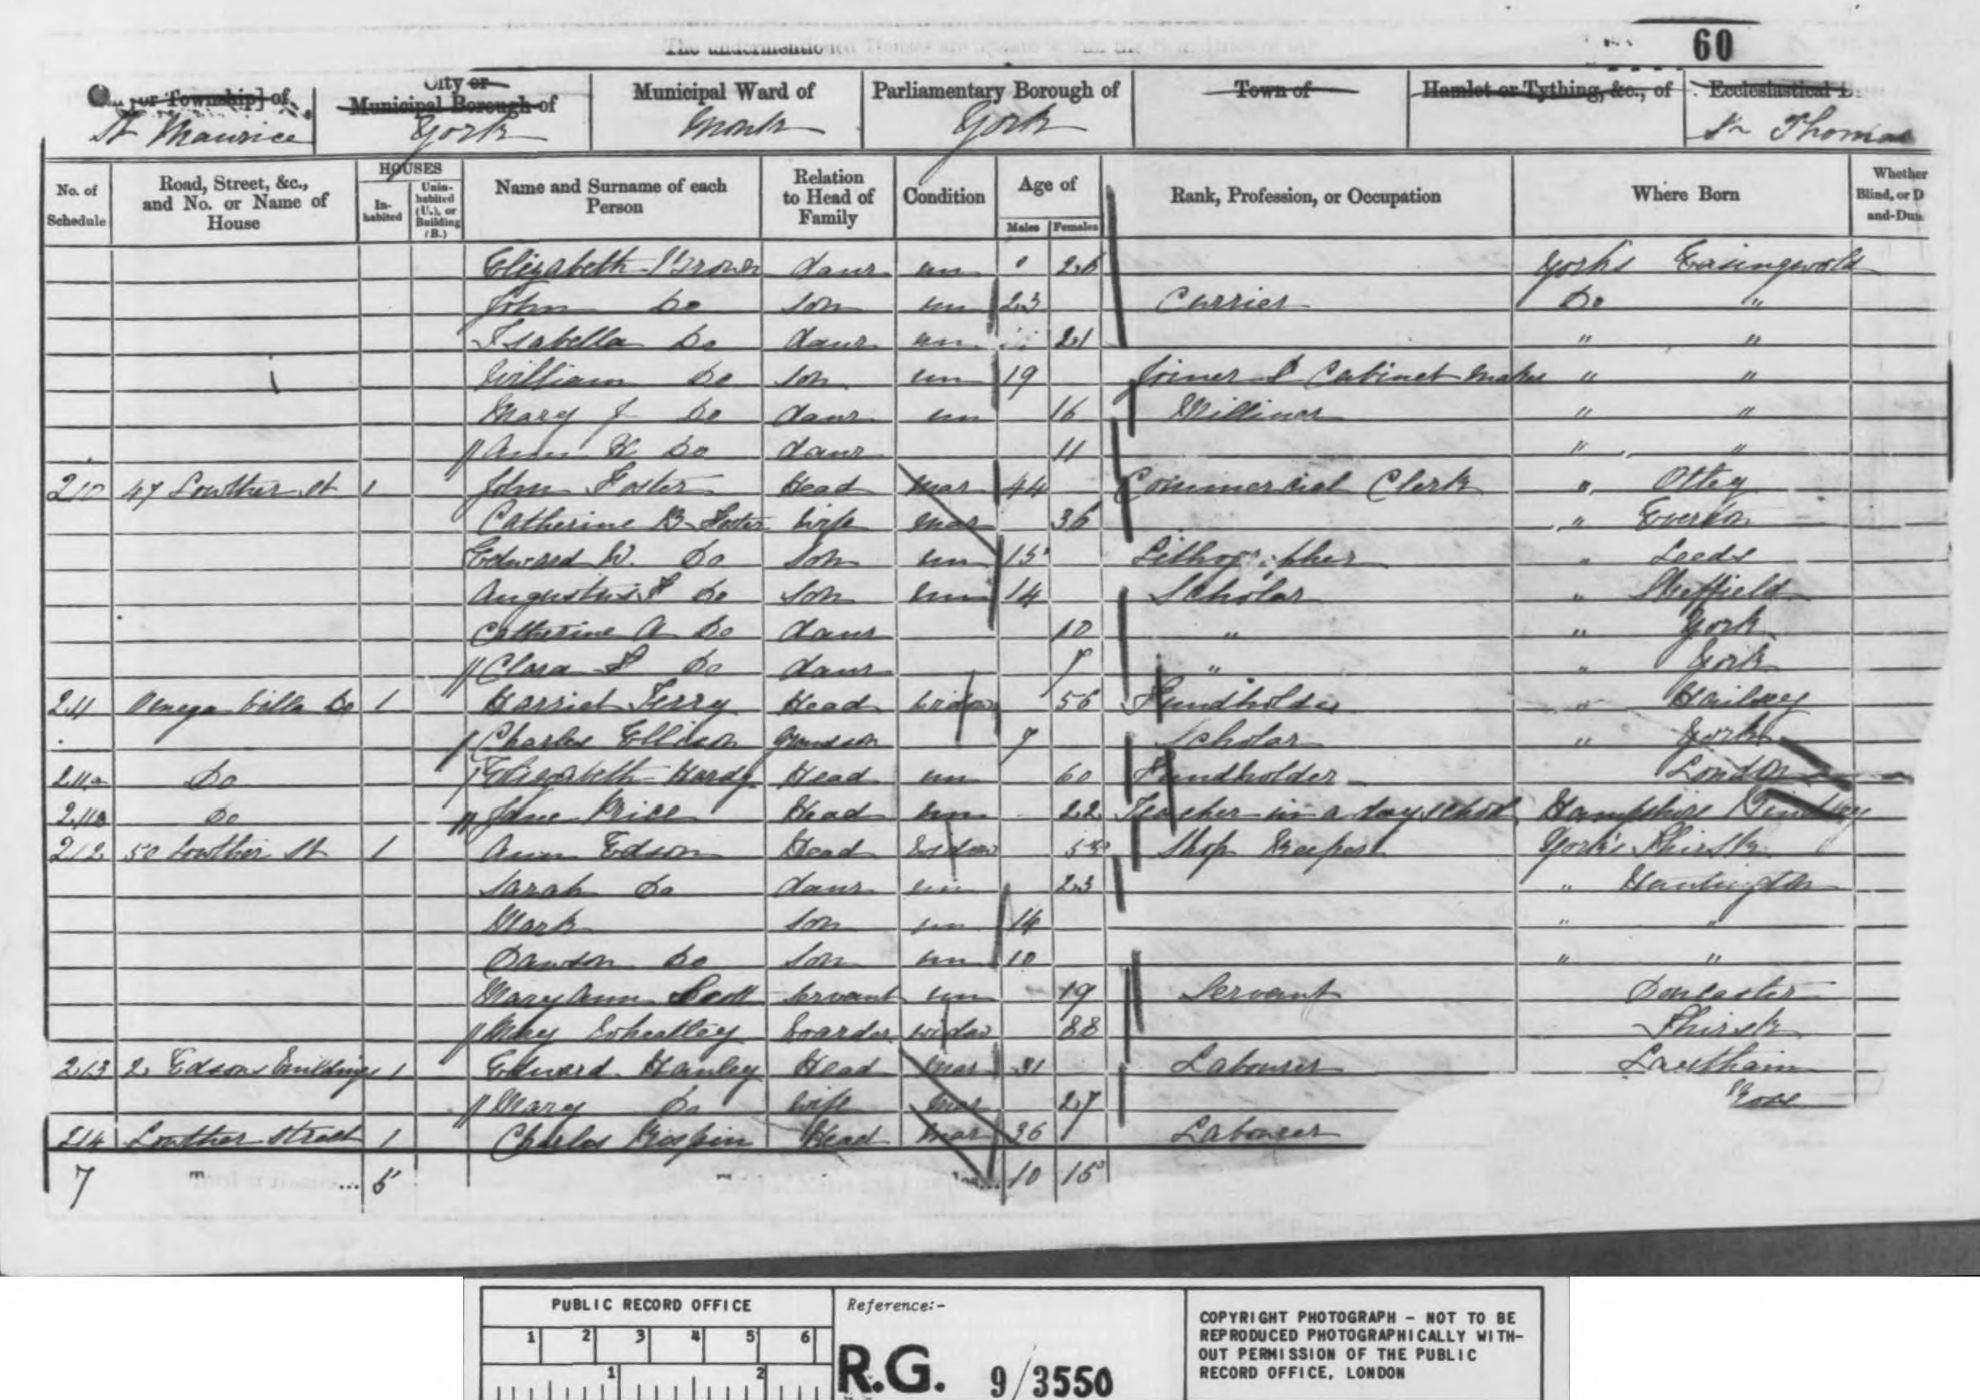 60
The undermentioned Houses are situate within the Boundaries of the
or Township] of City or Municipal Borough of Municipal Ward of Parliamentary Borough of Town of Hamlet or Tything, &c., of Ecclesiastical
St Maurice York Monk York St Thomas
No. of Schedule Road, Street, &c., and No. or Name of House HOUSES In-habited Unin-habited (U.), or Building (B.) Name and Surname of each Person Relation to Head of Family Condition Age of Males Females Rank, Profession, or Occupation Where Born Whether Blind, or D and-Dum
Elizabeth Brown daur un 26 Yorks Easingwold
John Do son un 23 Currier Do "
Isabella Do daur un 21 " "
William Do son un 19 Joiner & Cabinet maker " "
Mary J Do daur un 16 Milliner " "
Ann Do daur 11 " "
210 47 Lowther St 1 John Foster Head mar 44 Commercial Clerk " Otley
Catherine B Foster wife mar 36 " Everton
Edward W. Do son un 15 Lithographer " Leeds
Augustus Do son un 14 Scholar " Sheffield
Catherine A Do daur 10 " " York
Clara Do daur 7 " " York
211 Omega Villa Do 1 Harriet Terry Head widow 56 Fundholder "
Charles Ellison Grandson 7 Scholar " York
211a Do Elizabeth Hardy Head un 60 Fundholder London
211b Do Jane Price Head un 22 Teacher in a day school Hampshire
212 50 Lowther St 1 Ann Edson Head widow 55 Shop Keeper Yorks Thirsk
Sarah Do daur un 23 " Huntington
Mark son un 14 " "
Dawson Do son un 10 " "
Mary Ann Scott Servant un 19 Servant Doncaster
Mary Wheatley boarder widow 88 Thirsk
213 2 Edsons Buildings 1 Edward Hanley Head mar 31 Labourer
Mary Do wife mar 27
214 Lowther Street 1 Charles Head mar 36 Labourer
7 5 10 15
PUBLIC RECORD OFFICE
1 2 3 4 5 6
1 2
Reference:-
R.G. 9/3550
COPYRIGHT PHOTOGRAPH - NOT TO BE
REPRODUCED PHOTOGRAPHICALLY WITH-
OUT PERMISSION OF THE PUBLIC
RECORD OFFICE, LONDON